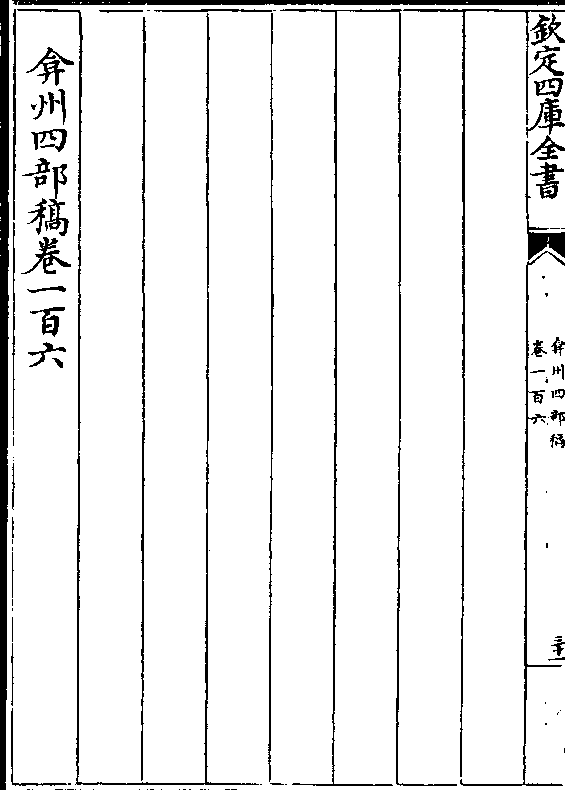 欽定四庫全書
弇州四部稿
卷一百六
三十一
弇州四部稿卷一百六